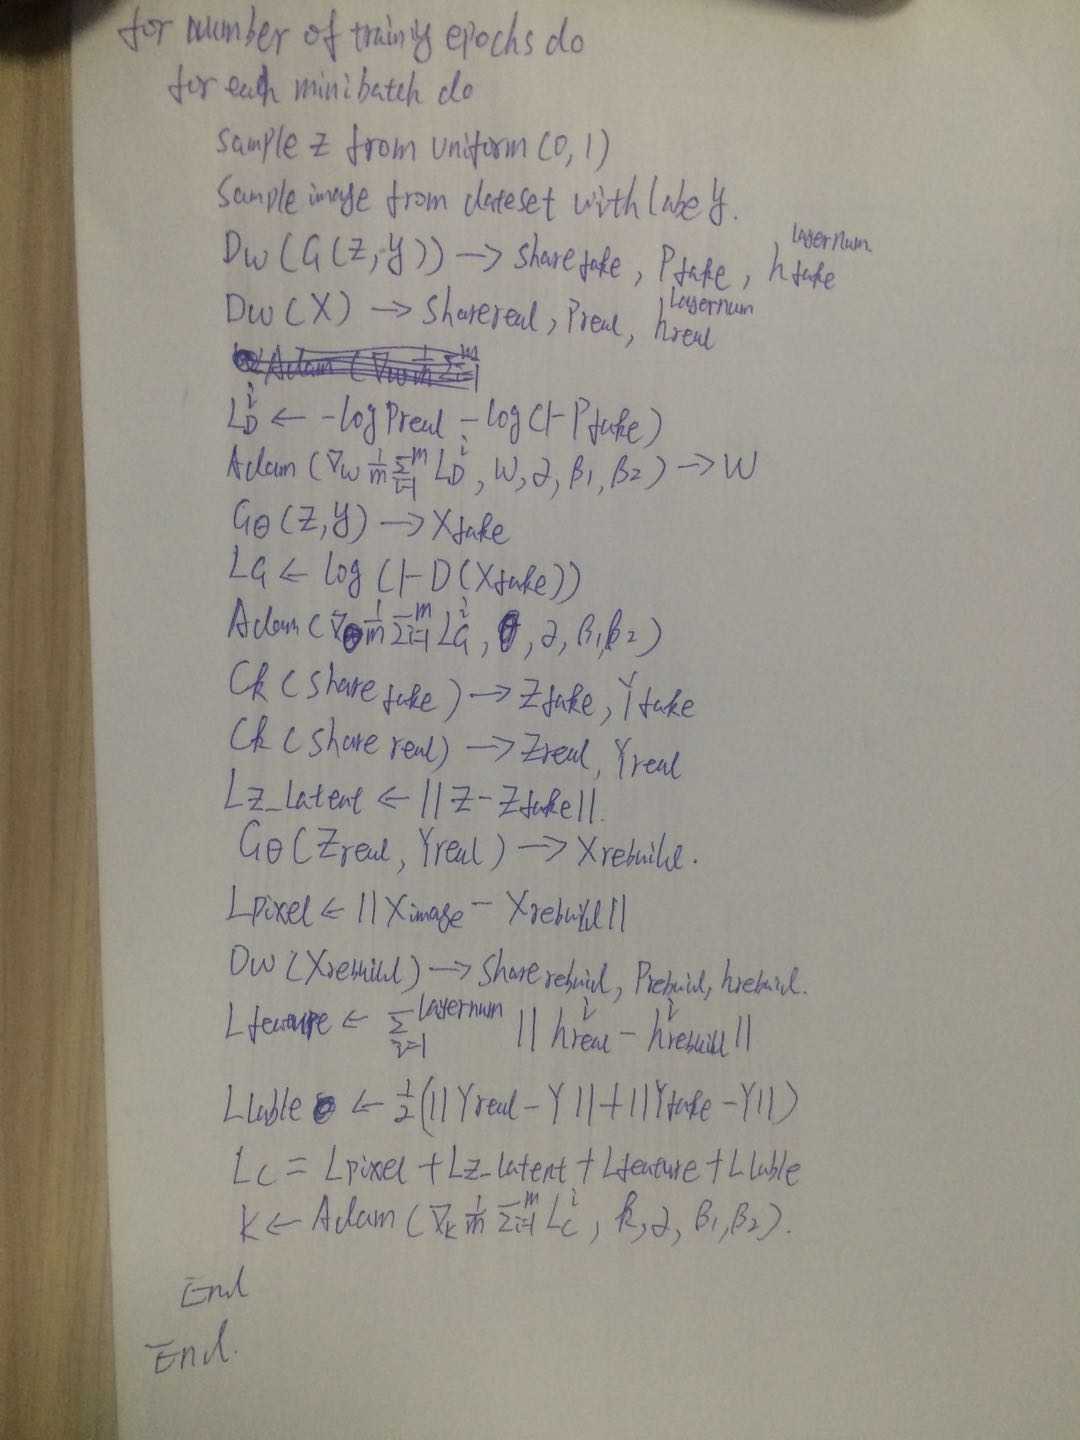 for number of training epochs do
for each minibatch do
sample z from uniform (0,1)
Sample image from dateset with labe y.
Dw (G(z,y)) → share fake, P fake, h fake layernum
Dw (X) → Share real, P real, h real layernum
Adam (∇w 1/m Σ i=1 m
L D i ← -log P real - log(1-P fake)
Adam (∇w 1/m Σ i=1 m L D i, W, ∂, β1, β2) → W
Gθ (z,y) → X fake
LG ← log (1-D(X fake))
Adam (∇θ 1/m Σ i=1 m L G i, θ, ∂, β1, β2)
Ck (share fake) → Z fake, Y fake
Ck (share real) → Z real, Y real
Lz_latent ← ||Z-Z fake||.
Gθ (Z real, Y real) → X rebuild.
Lpixel ← ||X image - X rebuild||
Dw (X rebuild) → Share rebuid, P rebuid, h rebuid.
Lfeature ← Σ i=1 layernum ||h real i - h rebuild i||
Llable ← 1/2 (||Y real - Y|| + ||Y fake - Y||)
Lc = Lpixel + Lz_latent + Lfeature + Llable
K ← Adam (∇k 1/m Σ i=1 m L C i, k, ∂, β1, β2).
End
End.